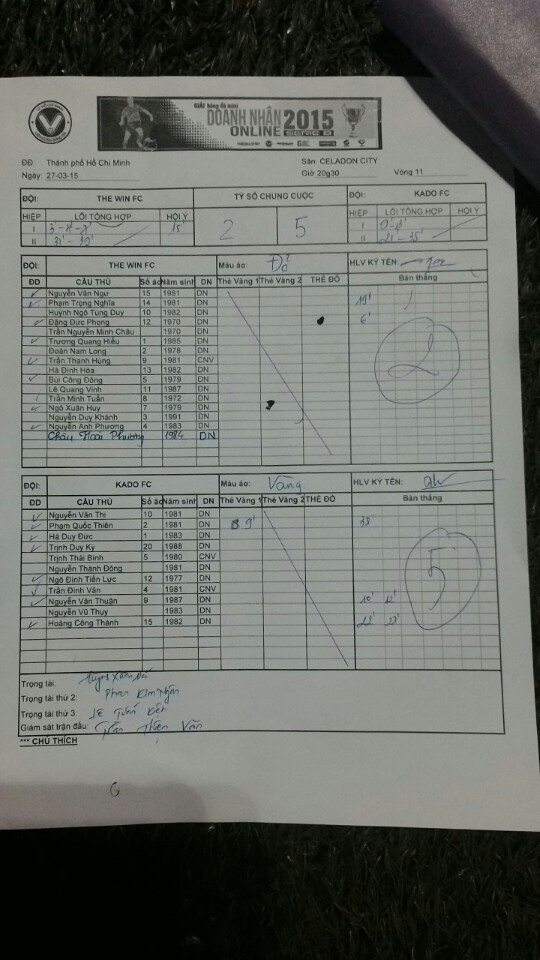 GIẢI bóng đá mini
DOANH NHÂN 2015
ONLINE SERIE B
ĐĐ: Thành phố Hồ Chí Minh Sân: CELADON CITY
Ngày: 27-03-15 Giờ 20g30 Vòng 11
ĐỘI: THE WIN FC TỶ SỐ CHUNG CUỘC ĐỘI: KADO FC
HIỆP LỖI TỔNG HỢP HỘI Ý 2 5 HIỆP LỖI TỔNG HỢP HỘI Ý
I 15' I
II 31' - 39' II 21 - 35'
ĐỘI: THE WIN FC Màu áo: Đỏ HLV KÝ TÊN:
ĐD CẦU THỦ Số áo Năm sinh DN Thẻ Vàng 1 Thẻ Vàng 2 THẺ ĐỎ Bàn thắng
Nguyễn Văn Ngư 15 1981 DN
Phạm Trọng Nghĩa 14 1981 DN 19'
Huỳnh Ngô Tùng Duy 10 1982 DN
Đặng Đức Phong 12 1970 DN 6'
Trần Nguyễn Minh Châu 1970 DN
Trương Quang Hiếu 1 1985 DN
Đoàn Nam Long 2 1978 DN
Trần Thanh Hùng 9 1981 CNV 2
Hà Đình Hòa 13 1982 DN
Bùi Công Đông 5 1979 DN
Lê Quang Vinh 11 1987 DN
Trần Minh Tuấn 8 1972 DN
Ngô Xuân Huy 7 1979 DN
Nguyễn Duy Khánh 3 1991 DN
Nguyễn Anh Phương 4 1983 DN
Châu Hoài Phương 1984 DN
ĐỘI: KADO FC Màu áo: Vàng HLV KÝ TÊN:
ĐD CẦU THỦ Số áo Năm sinh DN Thẻ Vàng 1 Thẻ Vàng 2 THẺ ĐỎ Bàn thắng
Nguyễn Văn Thi 10 1981 DN
Phạm Quốc Thiên 2 1981 DN 9' 38'
Hà Duy Đức 1 1983 DN
Trịnh Duy Kỳ 20 1988 DN
Trịnh Thái Bình 5 1980 CNV
Nguyễn Thành Đông 1981 DN 5
Ngô Đình Tiến Lực 12 1977 DN
Trần Đình Văn 4 1981 CNV
Nguyễn Văn Thuận 9 1987 DN 10'
Nguyễn Vũ Thụy 1983 DN
Hoàng Công Thành 15 1982 DN
Trọng tài:
Trọng tài thứ 2: Phan Kim Ngân
Trọng tài thứ 3:
Giám sát trận đấu: Trần Thiện Văn
*** CHÚ THÍCH